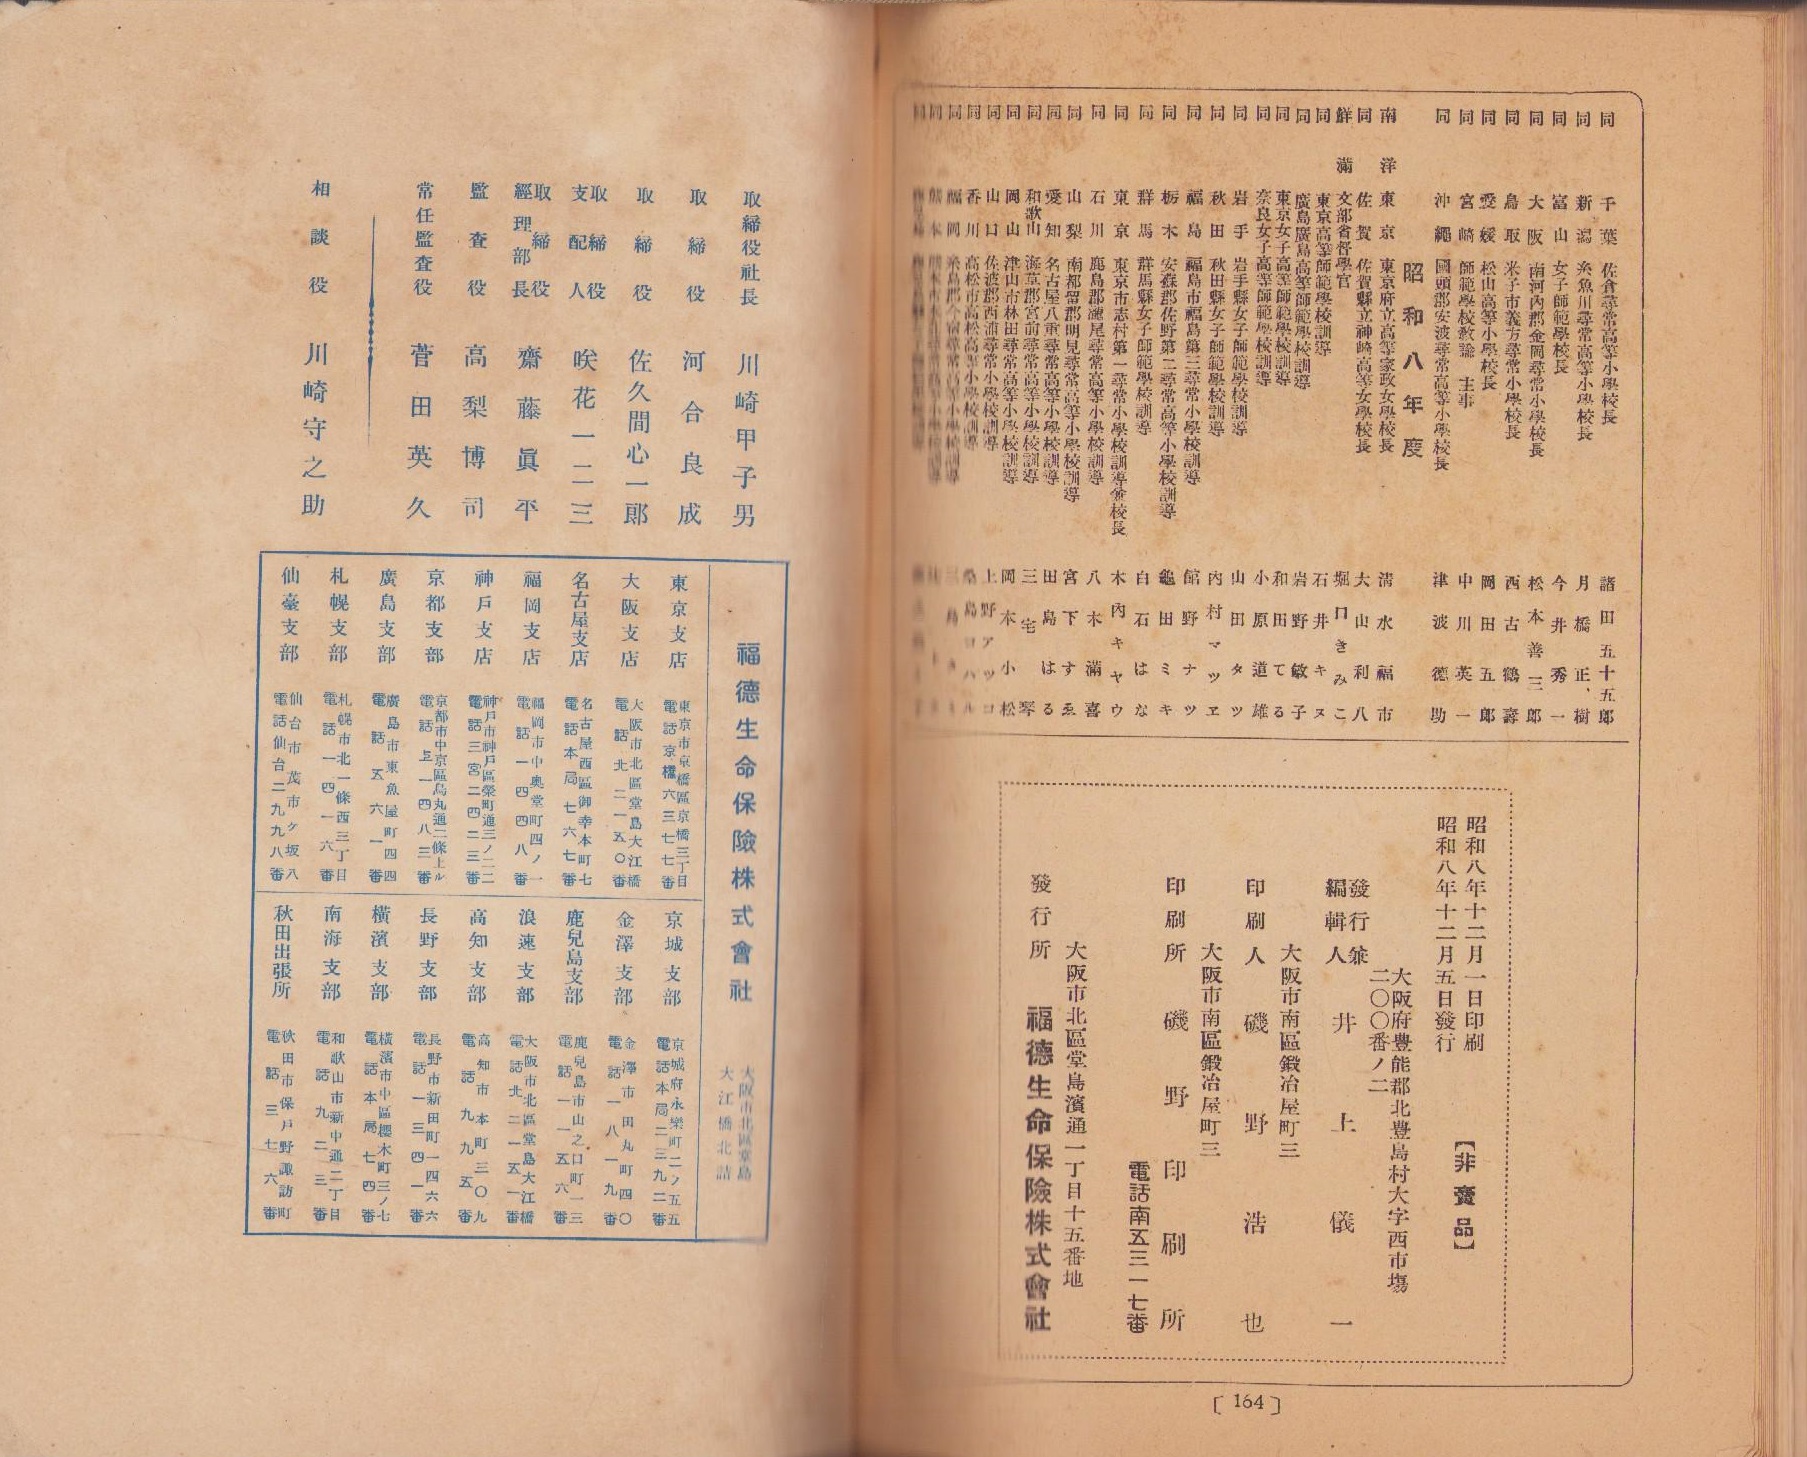 同　千葉　佐倉尋常高等小學校長　諸田五十五郎
同　新潟　糸魚川尋常高等小學校長　月橋正樹
同　富山　女子師範學校長　今井秀一
同　大阪　南河內郡金岡尋常小學校長　松本善三郎
同　鳥取　米子市義方尋常小學校長　西古鶴壽
同　愛媛　松山高等小學校長　岡田五郎
同　宮崎　師範學校敎諭　主事　中川英一
同　沖繩　國頭郡安波尋常高等小學校長　津波德助
昭和八年度
南洋　東京　東京府立高等家政女學校長　淸水福市
同　佐賀　佐賀縣立神崎高等女學校長　大山利八
鮮滿　文部省督學官　堀口きみこ
同　東京高等師範學校訓導　石井キヌ
同　廣島廣島高等師範學校訓導　岩野敏子
同　東京女子高等師範學校訓導　和田てる
同　奈良女子高等師範學校訓導　小原道雄
同　岩手　岩手縣女子師範學校訓導　山田タツ
同　秋田　秋田縣女子師範學校訓導　內村マツヱ
同　福島　福島市福島第三尋常小學校訓導　館野ナツ
同　栃木　安蘇郡佐野第二尋常高等小學校訓導　龜田ミキ
同　群馬　群馬縣女子師範學校訓導　白石はな
同　東京　東京市志村第一尋常小學校訓導兼校長　木內キヤウ
同　石川　鹿島郡瀧尾尋常高等小學校訓導　八木滿喜
同　山梨　南都留郡明見尋常高等小學校訓導　宮下すゑ
同　愛知　名古屋八重尋常高等小學校訓導　田島はる
同　和歌山　海草郡宮前尋常高等小學校訓導　三宅琴
同　岡山　津山市林田尋常高等小學校訓導　岡本小松
同　山口　佐波郡西浦尋常小學校訓導　上野アツコ
同　香川　高松市高松高等小學校訓導
同　福岡
同
昭和八年十二月一日印刷
昭和八年十二月五日發行
【非賣品】
大阪府豐能郡北豐島村大字西市塲
二〇〇番ノ二
發行兼編輯人　井上儀一
大阪市南區鍛冶屋町三
印刷人　磯野浩也
大阪市南區鍛冶屋町三
印刷所　磯野印刷所
電話南五三一七番
大阪市北區堂島濱通一丁目十五番地
發行所　福德生命保險株式會社
[164]
取締役社長　川崎甲子男
取締役　河合良成
取締役　佐久間心一郞
取締役支配人　咲花一二三
取締役經理部長　齋藤眞平
監査役　高梨博司
常任監査役　菅田英久
相談役　川崎守之助
福德生命保險株式會社　大阪市北區堂島大江橋北詰
東京支店　東京市京橋區京橋三丁目　電話京橋六三七七番
大阪支店　大阪市北區堂島大江橋　電話北二一五〇番
名古屋支店　名古屋西區御幸本町七　電話本局七六七番
福岡支店　福岡市中奥堂町四ノ一　電話一四四八番
神戶支店　神戶市神戶區榮町通三ノ二二　電話三宮二四二三番
京都支部　京都市中京區烏丸通二條上ル　電話上一四八三番
廣島支部　廣島市東魚屋町四四　電話五六一番
札幌支部　札幌市北一條西三丁目　電話一四一六番
仙臺支部　仙台市茂市ケ坂八　電話仙台二九九八番
京城支部　京城府永樂町二ノ五五　電話本局二三九二番
金澤支部　金澤市田丸町四〇　電話一八一九番
鹿兒島支部　鹿兒島市山之口町一三　電話一一五六番
浪速支部　大阪市北區堂島大江橋　電話北二一五一番
高知支部　高知市本町三〇九　電話九九五番
長野支部　長野市新田町一四六六　電話一三四一番
橫濱支部　橫濱市中區櫻木町三ノ七　電話本局七四番
南海支部　和歌山市新中通二丁目　電話九二三番
秋田出張所　秋田市保戶野諏訪町　電話三七六番